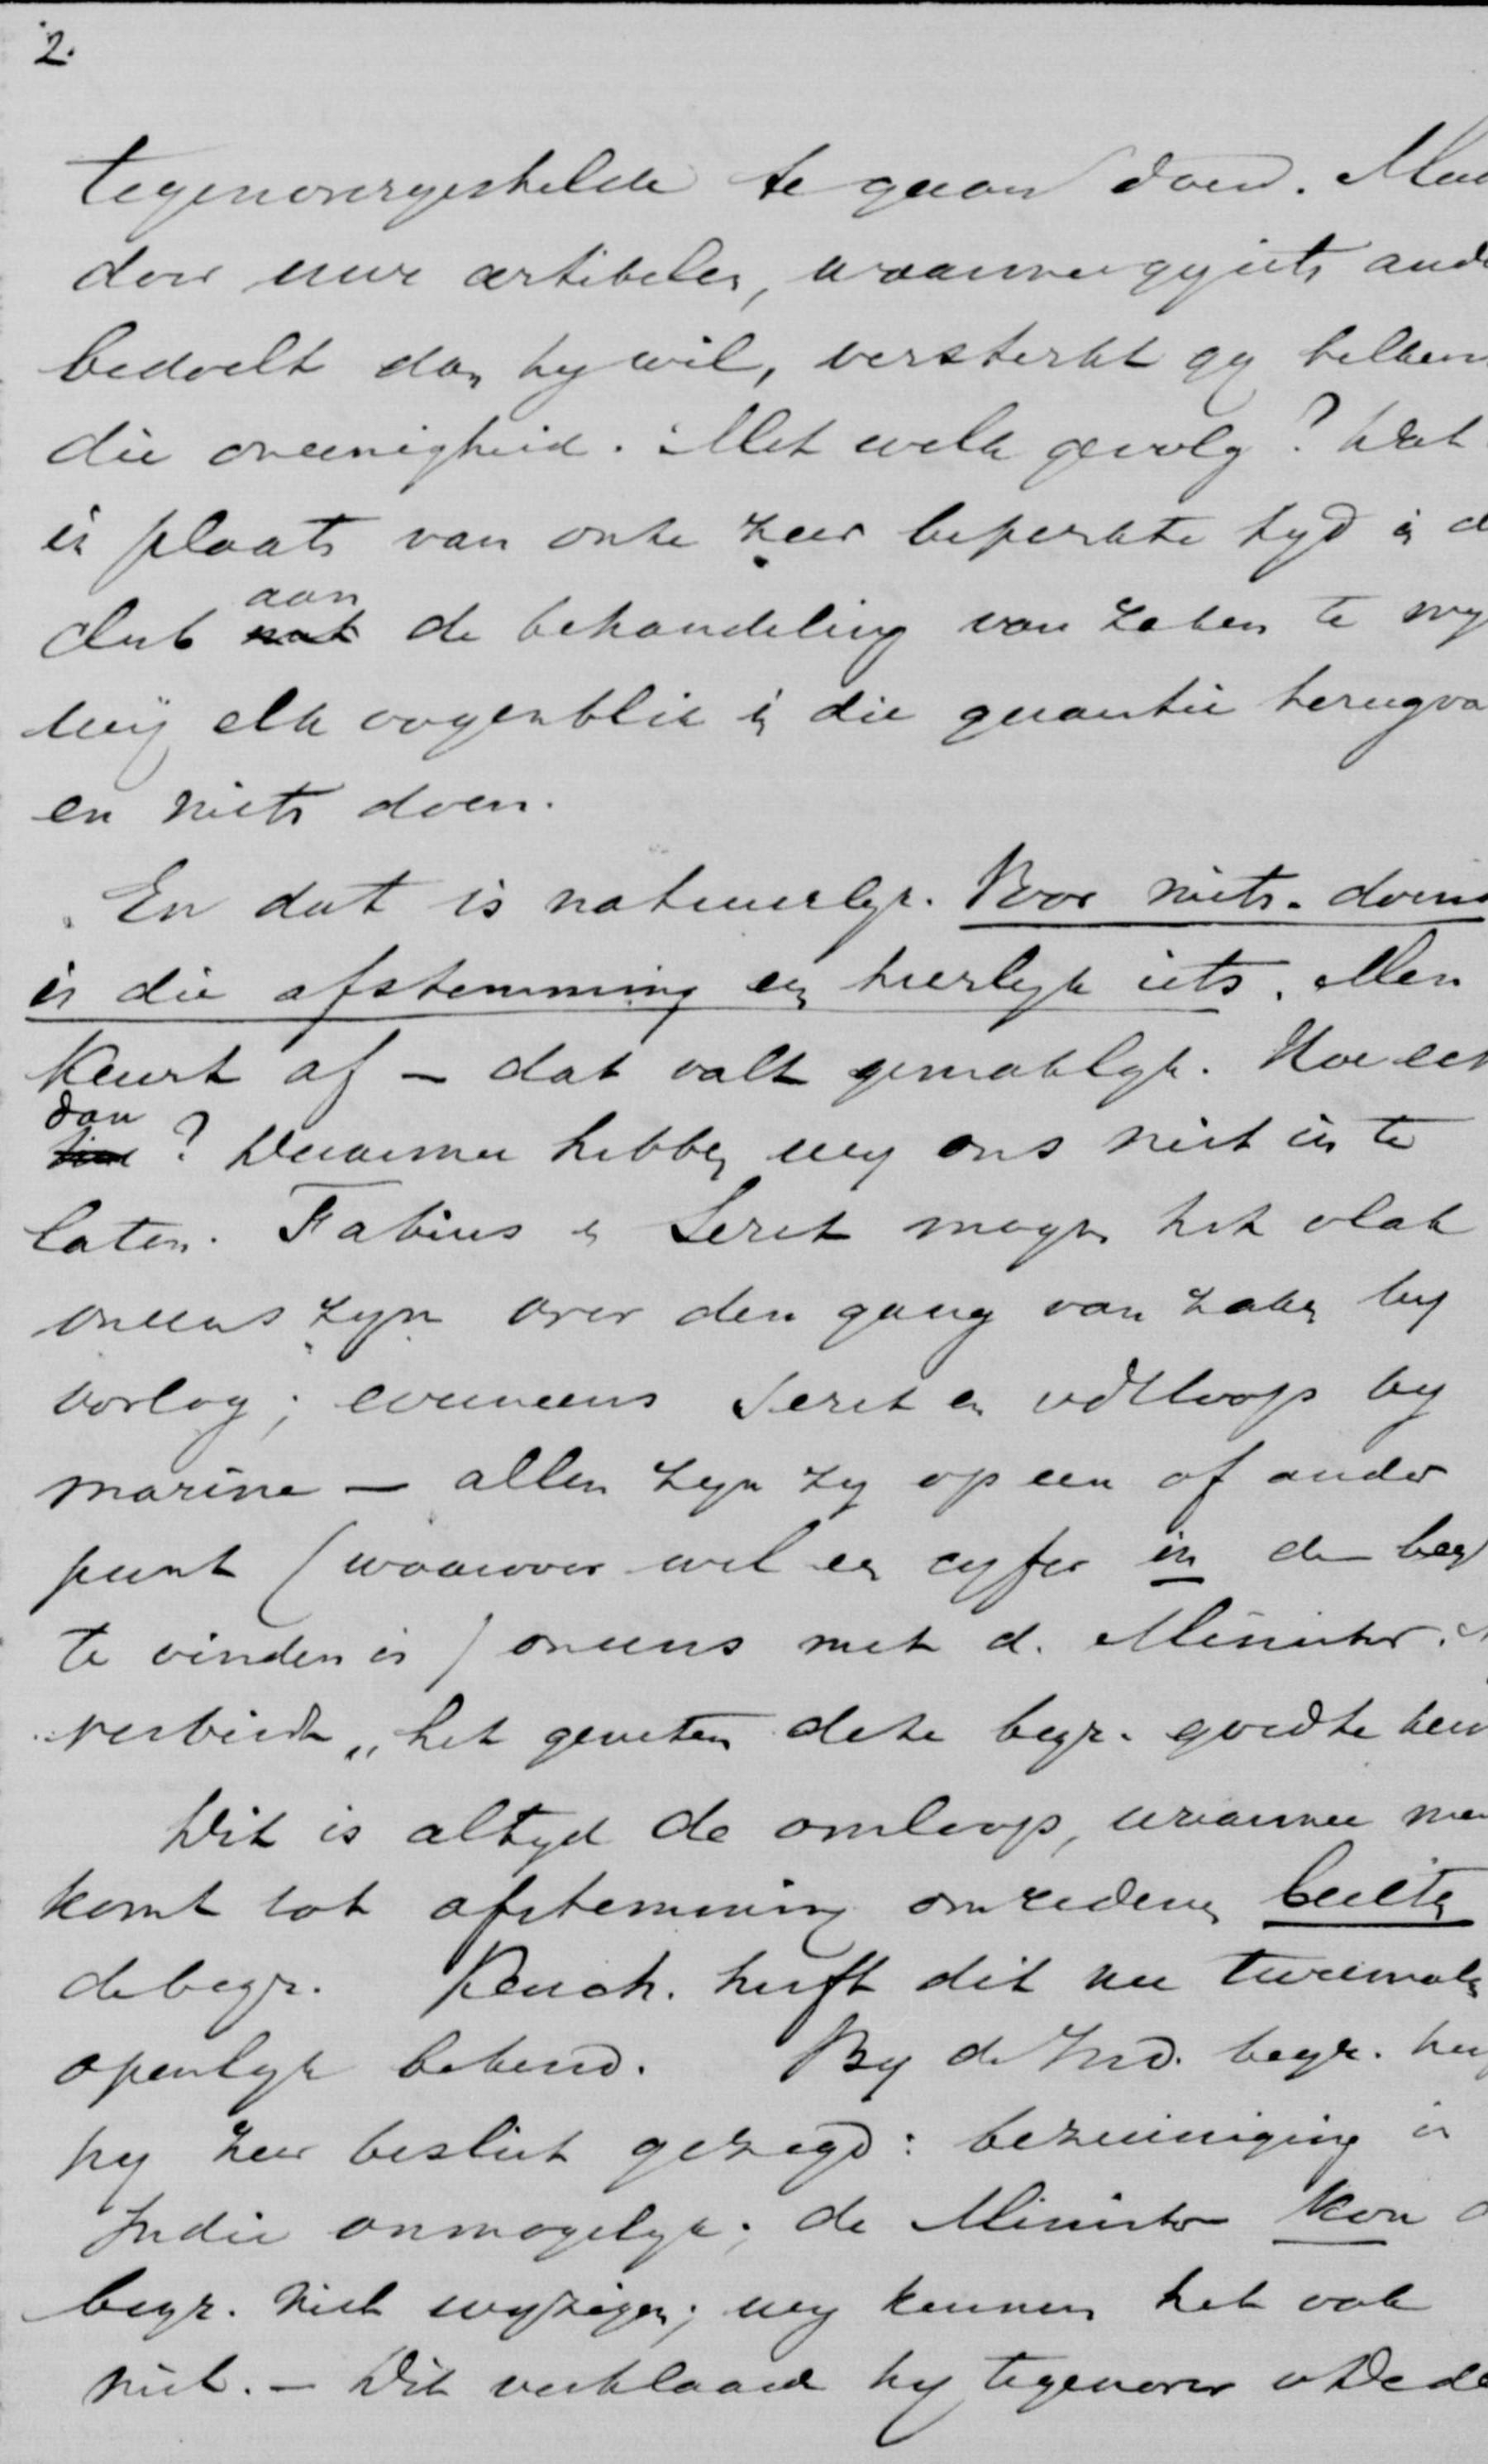 2.
tegenovergestelde te gaan doen. Maar
door uwe artikelen, waarmee gy iets ande
bedoelt dan hy wil, versterkt gy telken
die oneenigheid. Met welk gevolg? Dat
in plaats van onze zeer beperkte tyd in d
club aan de behandeling van zaken te wy
wij elk oogenblik in die quaestie terugva
en niets doen.
En dat is natuurlyk. Voor niets-doens
is die afstemming een heerlyk iets. Men
keurt af – dat valt gemaklyk. Hoe een
dan? Daarmee hebben wy ons niet in te
laten. Fabius en Seret mogen het vlak
oneens zyn over den gang van zaken by
oorlog; eveneens Seret en vdLoop by
marine – allen zyn zy op een of ander
punt (waarvoor wel een cyfer in de beg
te vinden is) oneens met d. Minister.
verbindt „het geweten deze begr. goed te keu
Dit is altyd de omloop, waarmee me
komt tot afstemming om redenen buiten
de begr. Keuch. heeft dit nu tweemalen
openlyk bekend. By de Ind. begr. hee
hy zeer beslist gezegd: bezuiniging in
Indie onmogelyk; de Minister kon d
begr. niet wyzigen; wy kunnen het ook
niet. – Dit verklaarde hy tegenover vDede